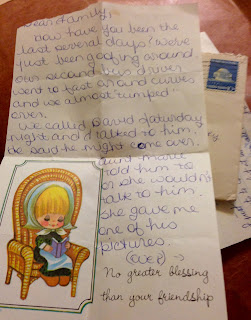 Dear Family,
how have you been the
last several days? We've
just been goofing around
our second bus driver
went to fast around curves
and we almost tumped
over.
We called David Saturday
night and I talked to him.
He said he might come over.
aunt marie
told him to
or she wouldn't
talk to him.
she gave me
one of his
pictures.
(OVER) →
No greater blessing
than your friendship